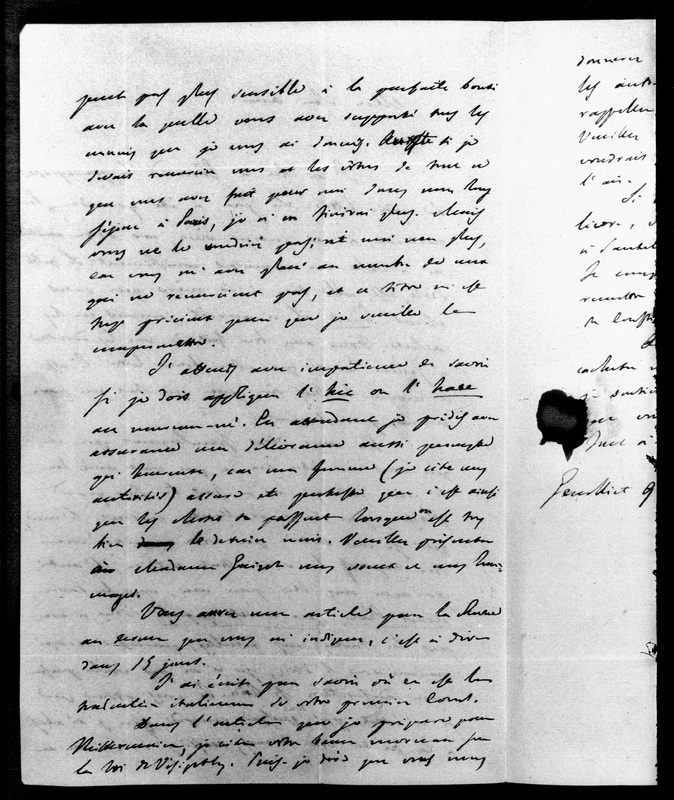 peut pas plus sensible à la parfaite bonté
avec laquelle vous avez supporté tous les
ennuis que je vous ai donnés. si je
devais remercier vous et les vôtres de tout ce
que vous avez fait pour moi dans mon long
séjour à Paris, je n'en finirai plus. Mais
vous ne le voudriez pas; et moi non plus,
car vous m'avez placé au nombre de ceux
qui ne remercient pas, et ce titre m'est
trop précieux pour que je veuille le
compromettre.
J'attends avec impatience de savoir
si je dois appliquer l'hic ou l'haec
au nouveau-né. En attendant je prédis avec
assurance une délivrance aussi prompte
qu'heureuse, car ma femme (je cite mes
autorités) assure et proteste que c'est ainsi
que les choses se passent lorsqu'on est très
bien le dernier mois. Veuillez présenter
à Madame Guizot mes voeux et mes hom-
mages.
Vous aurez mon article pour la Revue
au terme que vous m'indiquez, c'est à dire
dans 15 jours.
J'ai écrit pour savoir où en est la
traduction italienne de votre premier Cours.
Dans l'article que je prépare pour
Mittermaier, je cite votre beau morceau sur
la loi des Visigoths. Puis-je dire que vous nous
donnerez
les
rappeller
Veuillez
voudrais
l'air.
Si
livre,
à
Je
remettre
cacheter
je
que
à